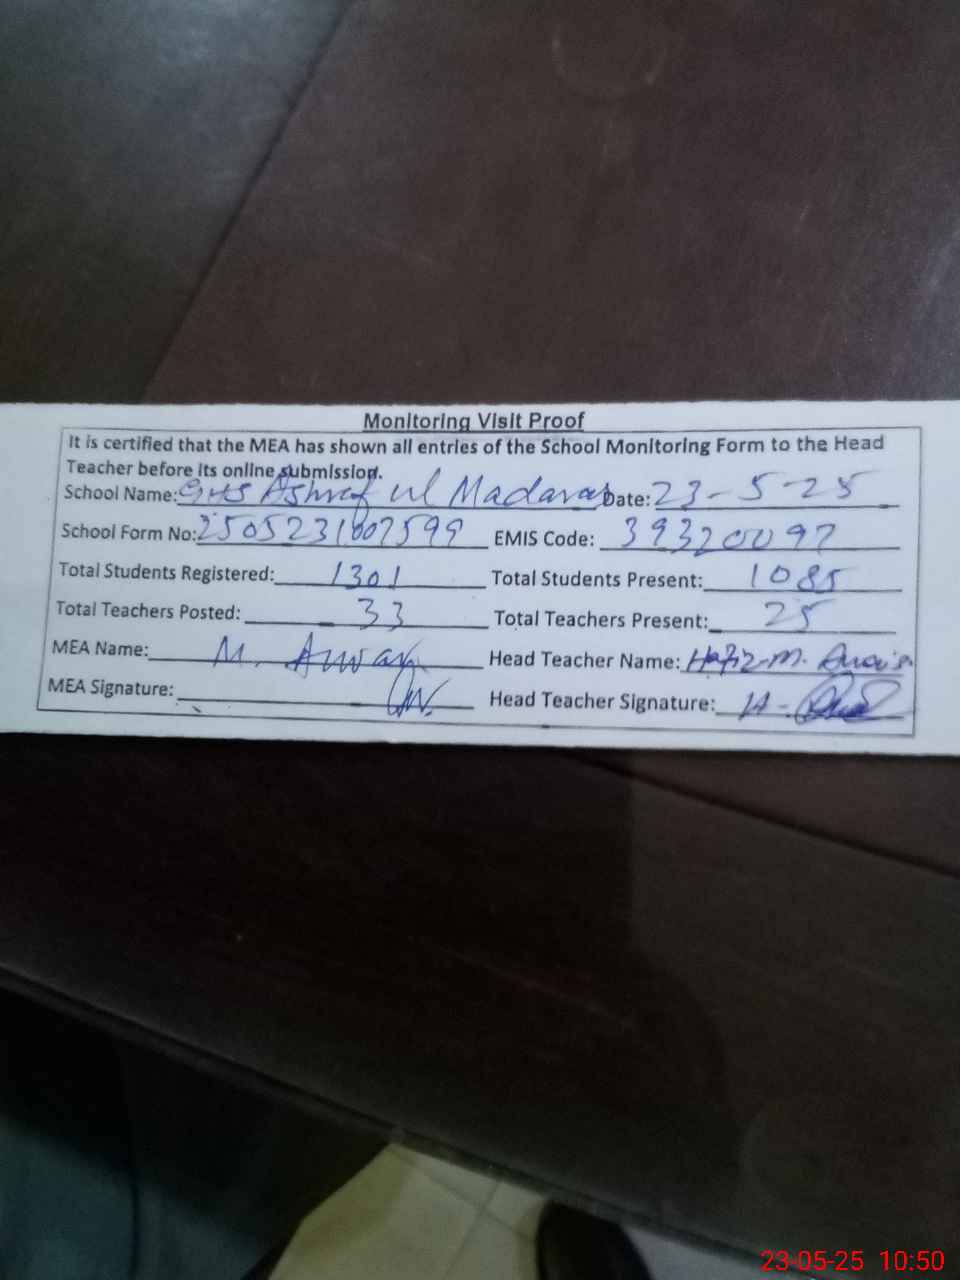 Monitoring Visit Proof
It is certified that the MEA has shown all entries of the School Monitoring Form to the Head
Teacher before its online submission.
School Name: GHS Ashraf ul Madaras Date: 23-5-25
School Form No: 2505231007599 EMIS Code: 39320097
Total Students Registered: 1301 Total Students Present: 1085
Total Teachers Posted: 33 Total Teachers Present: 25
MEA Name: M. Head Teacher Name: Hafiz M.
MEA Signature: Head Teacher Signature:
23-05-25 10:50